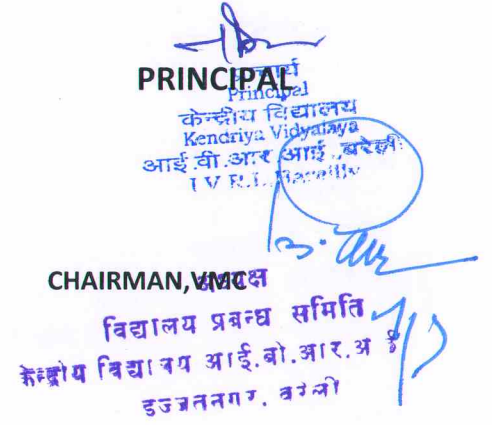 PRINCIPAL
प्राचार्य
Principal
केन्द्रीय विद्यालय
Kendriya Vidyalaya
आई.वी.आर.आई., बरेली
I.V.R.I., Bareilly
CHAIRMAN,VMC
अध्यक्ष
विद्यालय प्रबन्ध समिति
केन्द्रीय विद्यालय आई.बी.आर.अ ई
इज्जतनगर, बरेली